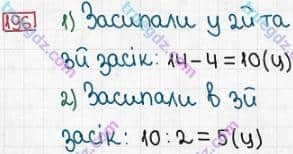 196 1) Засипали у 2й та
3й засік: 14-4=10(ц)
2) Засипали в 3й
засік: 10:2=5(ц)